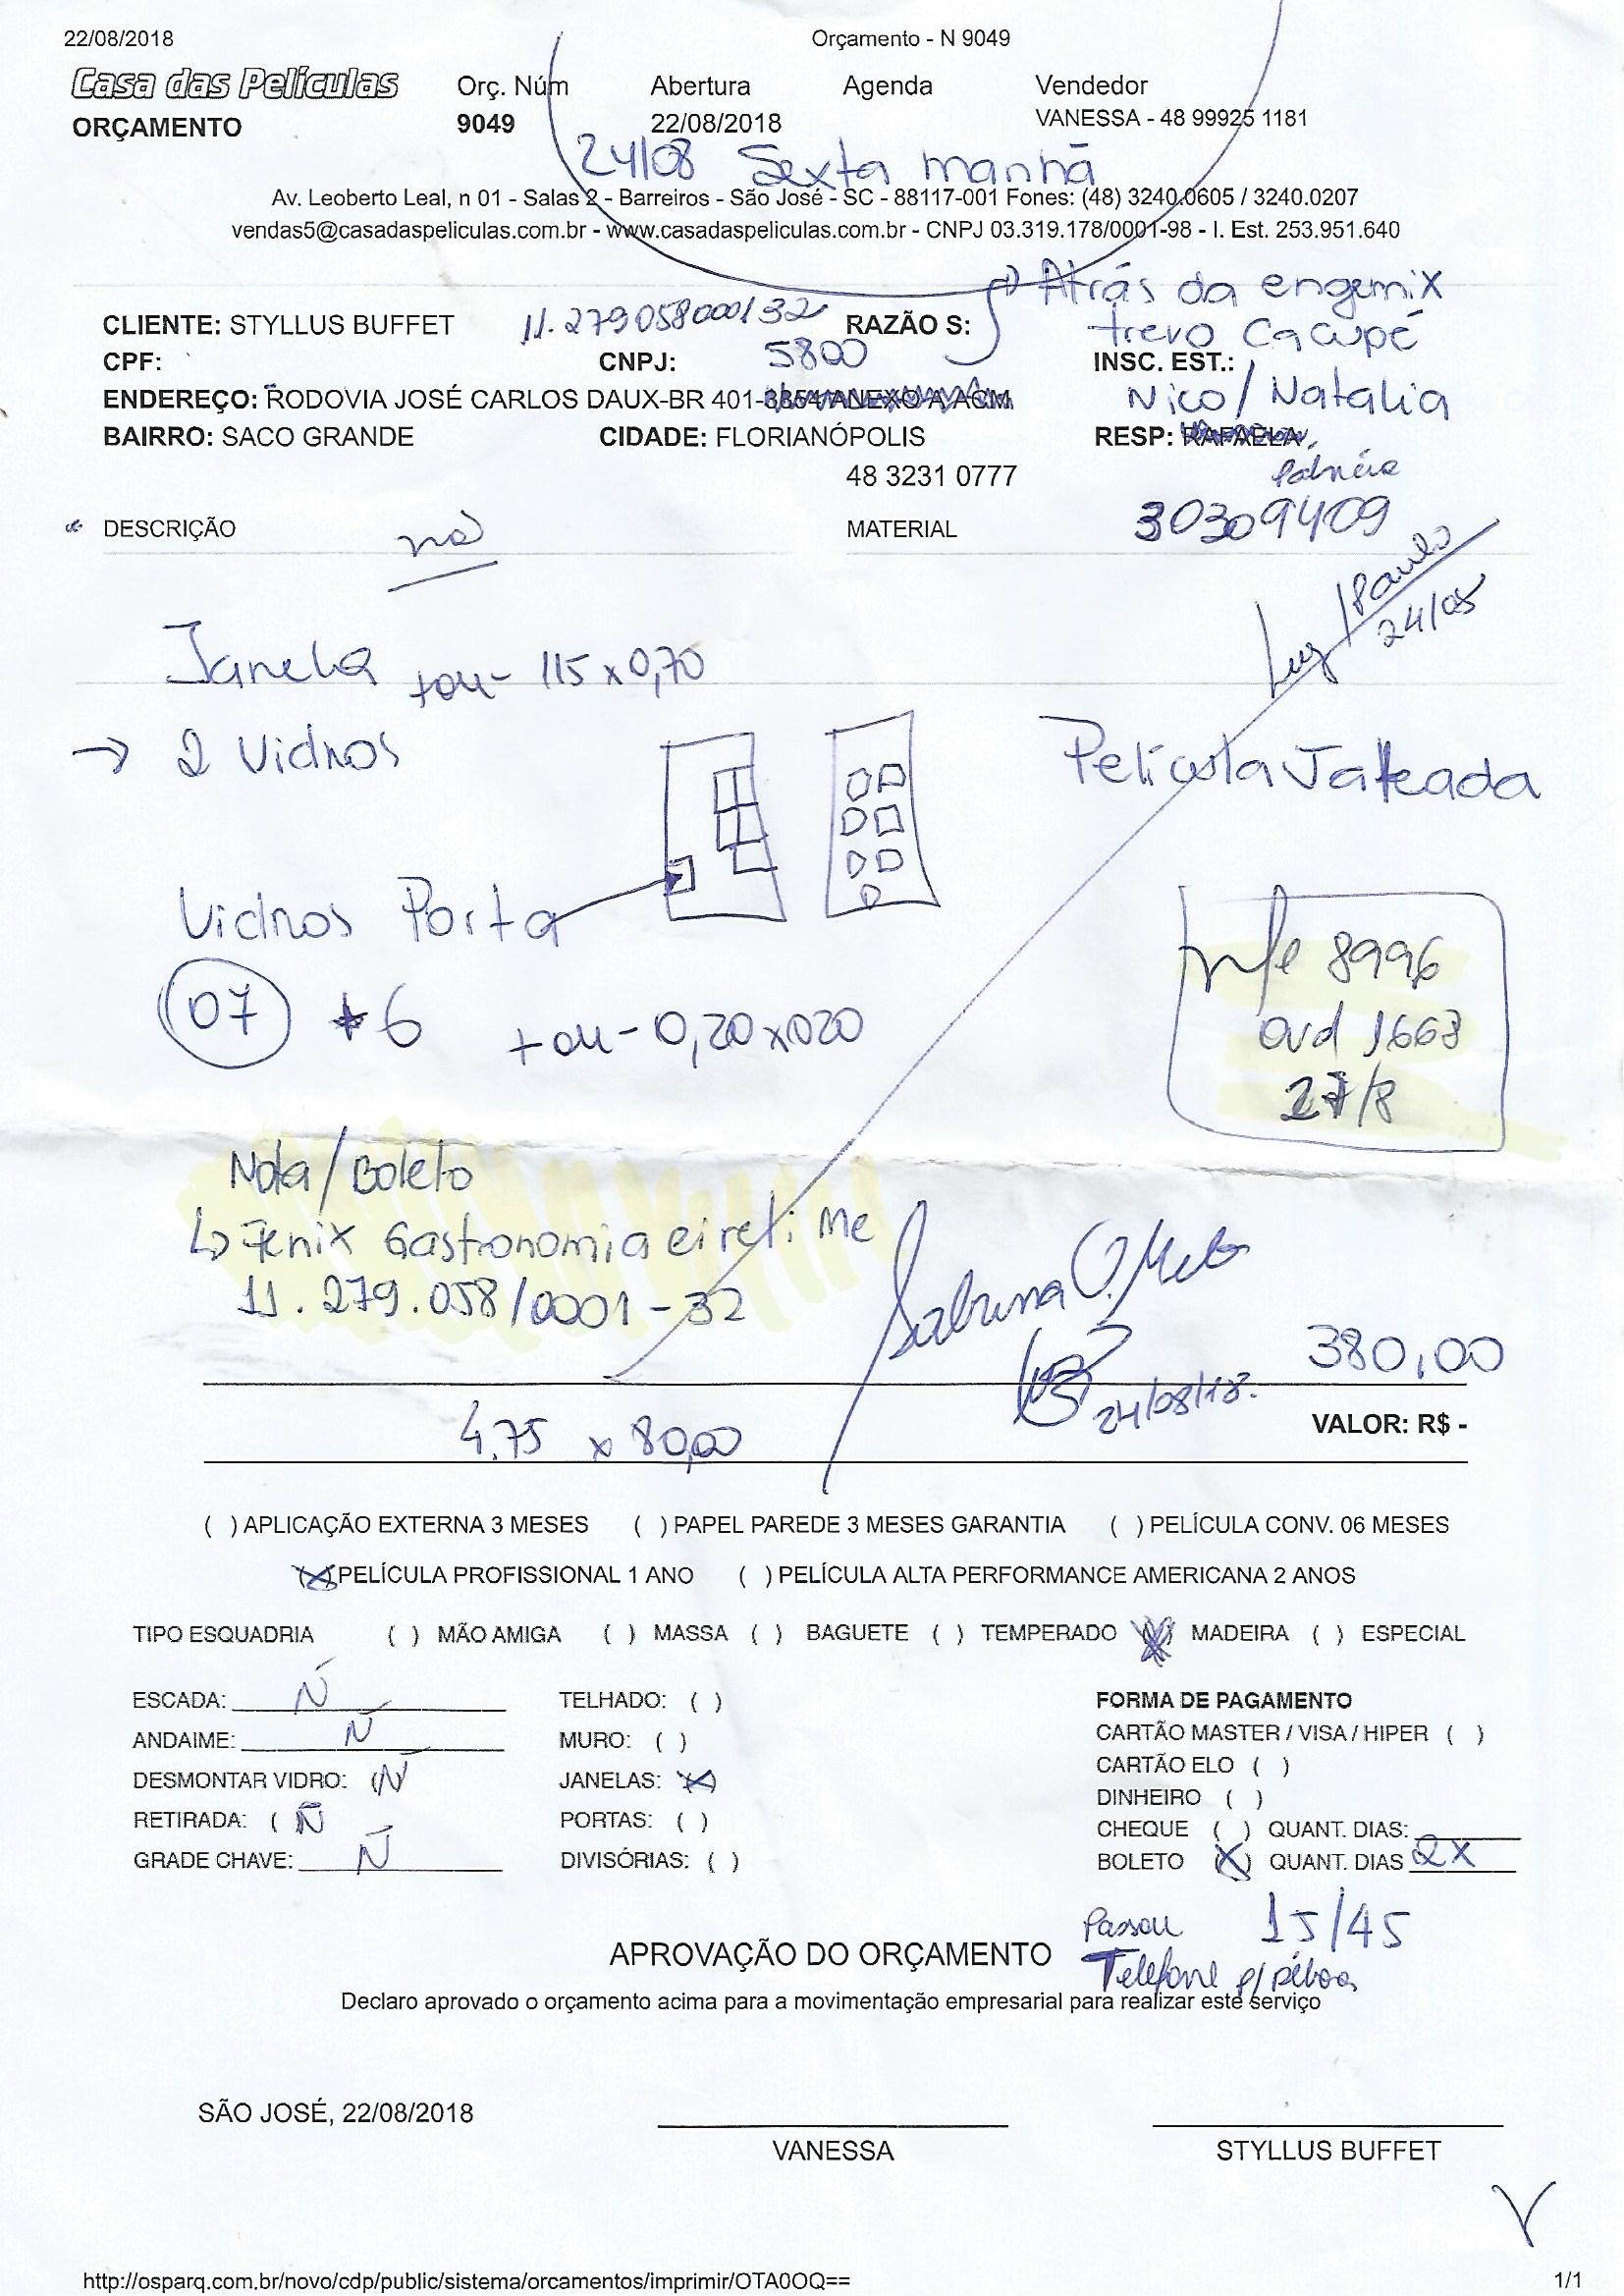 22/08/2018 Orçamento - N 9049
Casa das Películas Orç. Núm Abertura Agenda Vendedor
ORÇAMENTO 9049 22/08/2018 VANESSA - 48 99925 1181
24/08 Sexta manhã
Av. Leoberto Leal, n 01 - Salas 2 - Barreiros - São José - SC - 88117-001 Fones: (48) 3240.0605 / 3240.0207
vendas5@casadaspeliculas.com.br - www.casadaspeliculas.com.br - CNPJ 03.319.178/0001-98 - I. Est. 253.951.640
Atrás da engemix
CLIENTE: STYLLUS BUFFET 11.279058000132 RAZÃO S: trevo Cacupé
CPF: CNPJ: 5800 INSC. EST.:
ENDEREÇO: RODOVIA JOSÉ CARLOS DAUX-BR 401-3854 ANEXO A ACM Nico/Natalia
BAIRRO: SACO GRANDE CIDADE: FLORIANÓPOLIS RESP: RAFAELA
48 3231 0777
DESCRIÇÃO MATERIAL 30309409
Paulo
24/08
Janela +ou- 115 x 0,70
→ 2 Vidros Película Jateada
Vidros Porta
07 6 +ou- 0,20x020
nfe 8996
ord 1663
27/8
Nota/Boleto
↳ Fenix Gastronomia eireli Me
11.279.058/0001-32
380,00
24/08/18.
4.75 x 80,00 VALOR: R$ -
( ) APLICAÇÃO EXTERNA 3 MESES ( ) PAPEL PAREDE 3 MESES GARANTIA ( ) PELÍCULA CONV. 06 MESES
(X) PELÍCULA PROFISSIONAL 1 ANO ( ) PELÍCULA ALTA PERFORMANCE AMERICANA 2 ANOS
TIPO ESQUADRIA ( ) MÃO AMIGA ( ) MASSA ( ) BAGUETE ( ) TEMPERADO (X) MADEIRA ( ) ESPECIAL
ESCADA: Ñ TELHADO: ( ) FORMA DE PAGAMENTO
ANDAIME: Ñ MURO: ( ) CARTÃO MASTER / VISA / HIPER ( )
DESMONTAR VIDRO: (Ñ JANELAS: (X) CARTÃO ELO ( )
RETIRADA: ( Ñ PORTAS: ( ) DINHEIRO ( )
GRADE CHAVE: Ñ DIVISÓRIAS: ( ) CHEQUE ( ) QUANT. DIAS:
BOLETO (X) QUANT. DIAS 2x
Passou 15/45
APROVAÇÃO DO ORÇAMENTO Telefone p/
Declaro aprovado o orçamento acima para a movimentação empresarial para realizar este serviço
SÃO JOSÉ, 22/08/2018
VANESSA STYLLUS BUFFET
http://osparq.com.br/novo/cdp/public/sistema/orcamentos/imprimir/OTA0OQ== 1/1